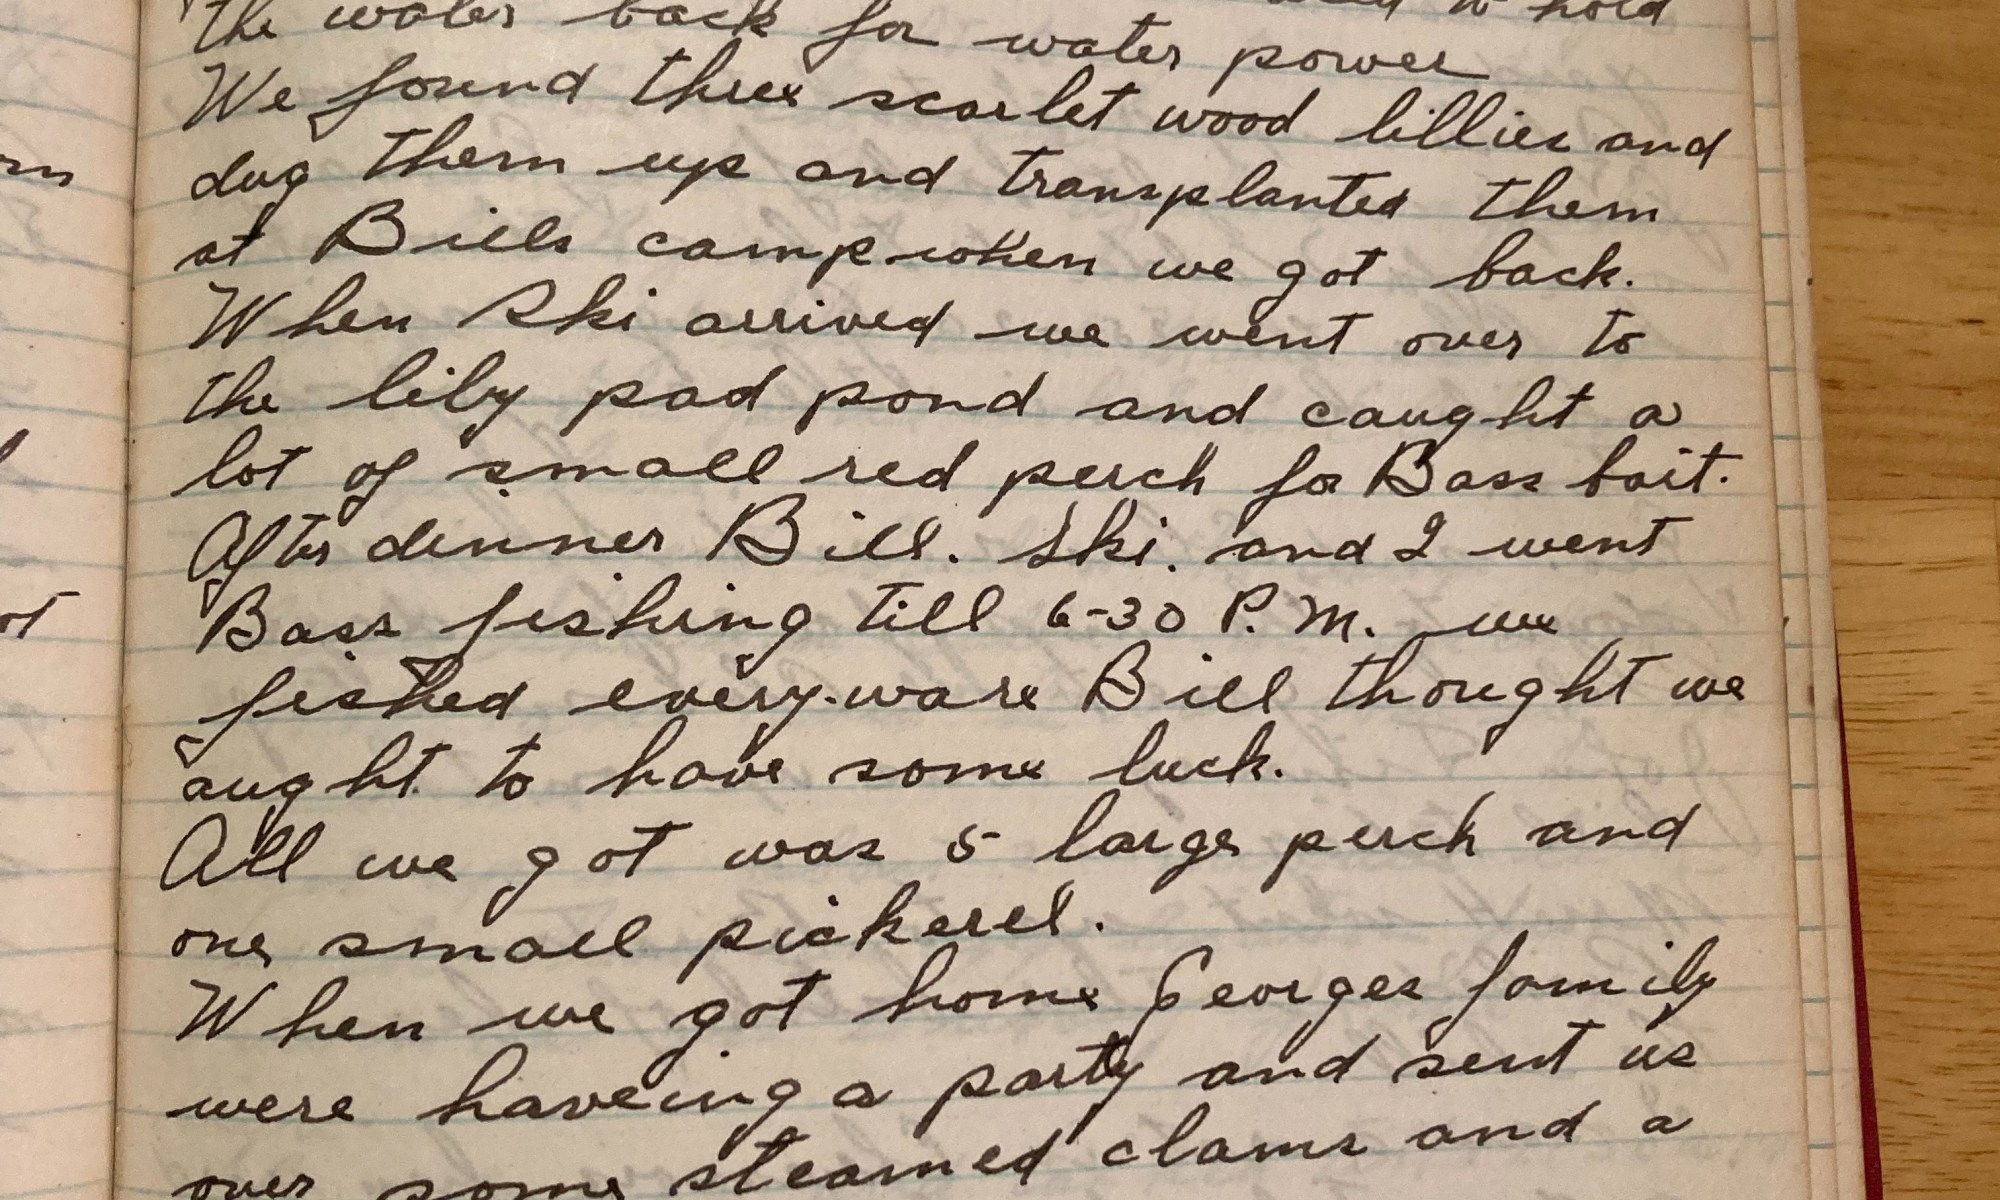 to hold
the water back for water power
We found three scarlet wood lillies and
dug them up and transplanted them
at Bills camp when we got back.
When Ski arrived we went over to
the lily pad pond and caught a
lot of small red perch for Bass bait.
After dinner Bill. Ski. and I went
Bass fishing till 6-30 P.M. we
fished every-ware Bill thought we
aught to have some luck.
All we got was 5 large perch and
one small pickerel.
When we got home Georges family
were haveing a party and sent us
over some steamed clams and a